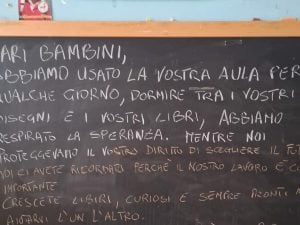 ARI BAMBINI,
ABBIAMO USATO LA VOSTRA AULA PER
QUALCHE GIORNO, DORMIRE TRA I VOSTRI
DISEGNI E I VOSTRI LIBRI, ABBIAMO
RESPIRATO LA SPERANZA. MENTRE NOI
PROTEGGEVAMO IL VOSTRO DIRITTO DI SCEGLIERE IL FUT
VOI CI AVETE RICORDATO PERCHÈ IL NOSTRO LAVORO È
IMPORTANTE
CRESCETE LIBERI, CURIOSI E SEMPRE PRONTI A
AIUTARVI L'UN L'ALTRO.